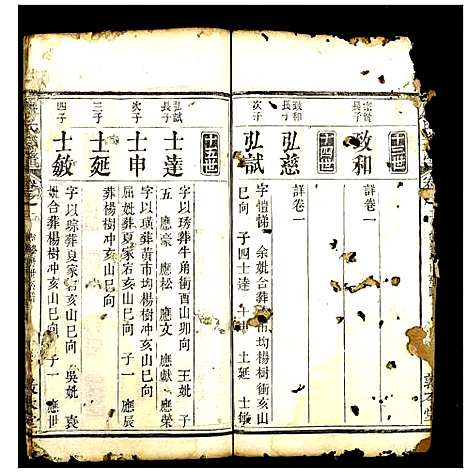 十三世
宗賢
長子
政和
詳卷一
十四世
政和
長子
弘慈
詳卷一
次子
弘試
字愷悌 余妣合葬 市均楊樹衝亥山
巳向 子四士達 士申 士延 士敏
十五世
弘試
長子
士達
字以琇葬牛角衝酉山卯向 王妣 子
五 應豪 應松 應文 應獻 應榮
次子
士申
字以璜葬黃市均楊樹冲亥山巳向
屈妣葬夏家宕亥山巳向 子一 應辰
三子
士延
字以琮葬夏家宕亥山巳向 吳妣 袁
四子
士敏
妣合葬楊樹冲亥山巳向 子一 應世
敦本堂